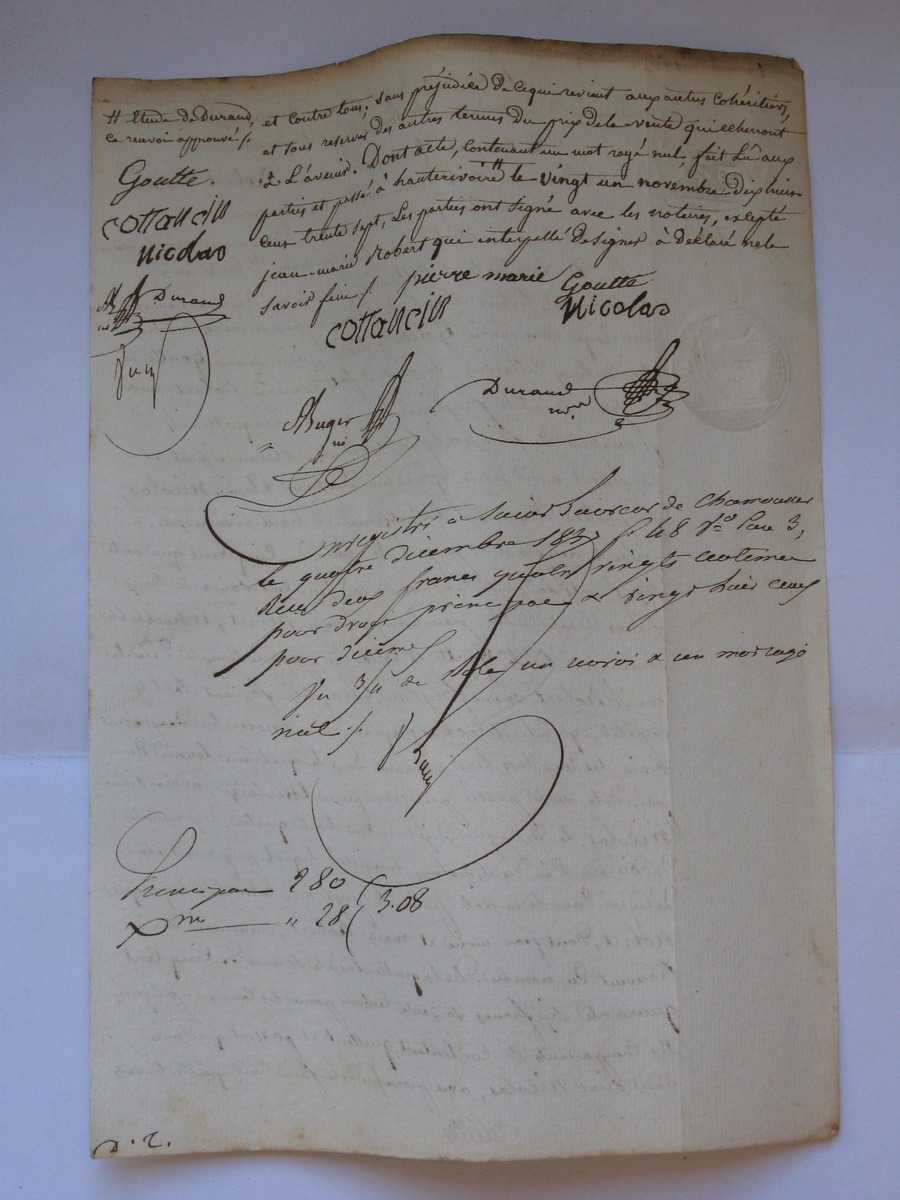 # Etude de Durand,
ce renvoi approuvé /.
Goutte.
cottancin
Nicolas
Durand
et contre tous, sans préjudice de ce qui revient aux autres cohéritiers,
et tous reserves des autres termes du prix de la vente qui echerront
à L'avenir. Dont acte, contenant un mot rayé nul, fait Lû aux
parties et passé à hauterivoire # le vingt un novembre dix huit
cent trente sept, Les parties ont signé avec les notaires, excepté
jean-marie Robert qui interpellé de signer à déclaré ne le
savoir faire /. pierre marie Goutte
cottancin Nicolas
Auger
Durand
Enregistré a Saint Laurent de Chamousset
le quatre décembre 1837 f. 48 V.º Case 3,
Reçu deux francs quatre vingts centimes
pour droit principal & vingt huit cent
pour dixième
de Rôle un renvoi & un mot rayé
nul /.
Principal 2 80
Xme " 28 3.08
D. 2.